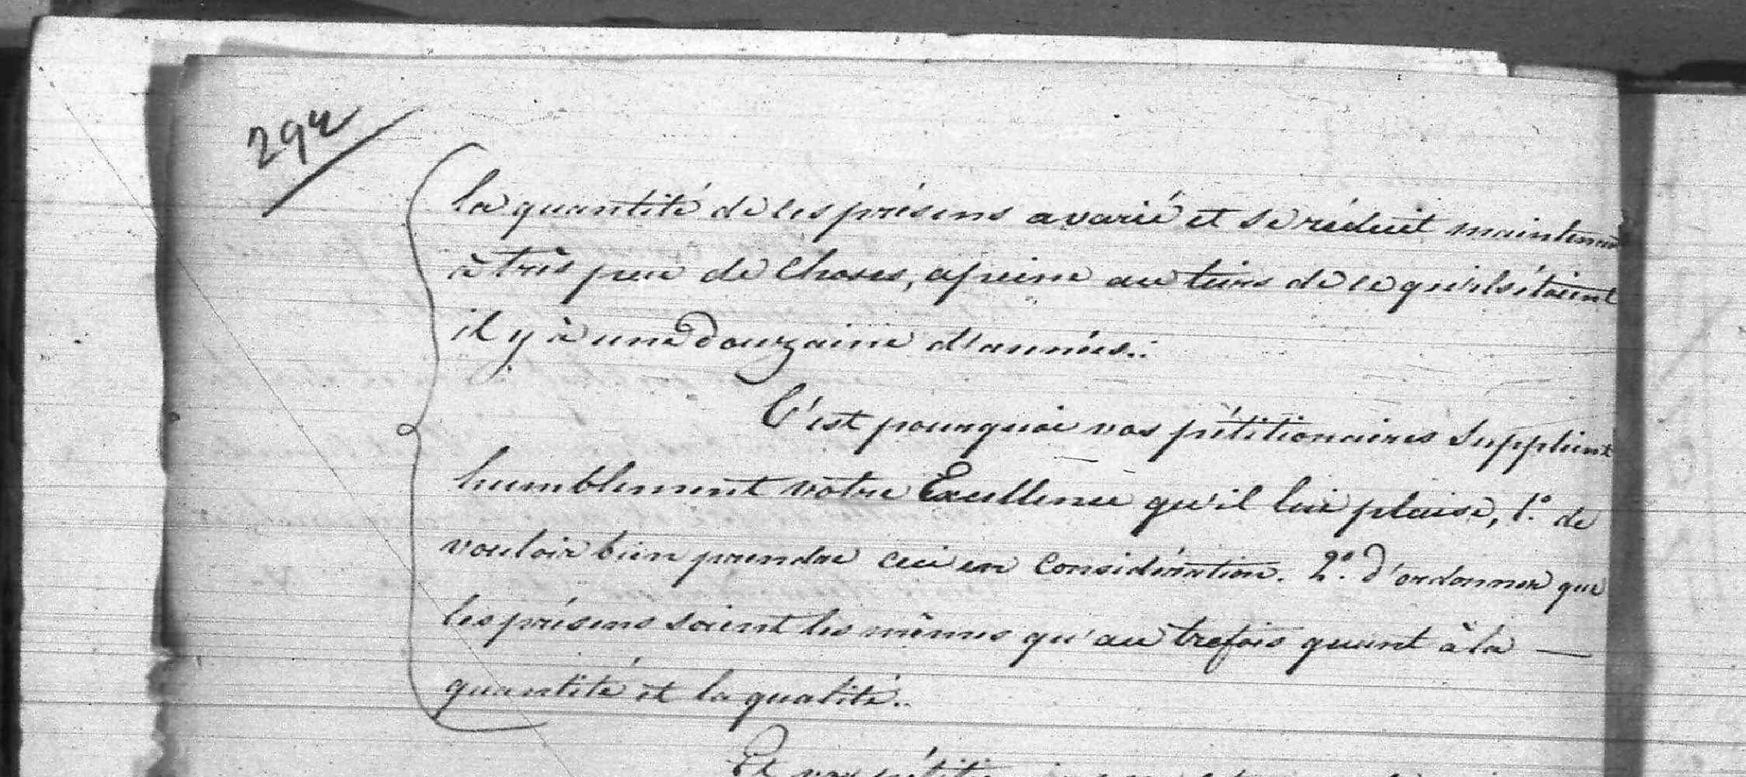 294
la quantité de ces présens a varié et se réduit maintenant
à très peu de choses, apeine au tiers de ce qu'ils étaient
il y à une Douzaine d'années..
C'est pourquoi vos pétitionaires Supplient
humblement votre Excellence qu'il lui plaise, 1º. de
vouloir bien prendre ceci en Considération. 2º. d'ordonner que
les présens soient les mêmes qu'au trefois quant à la —
quantité et la qualité..
Et vos